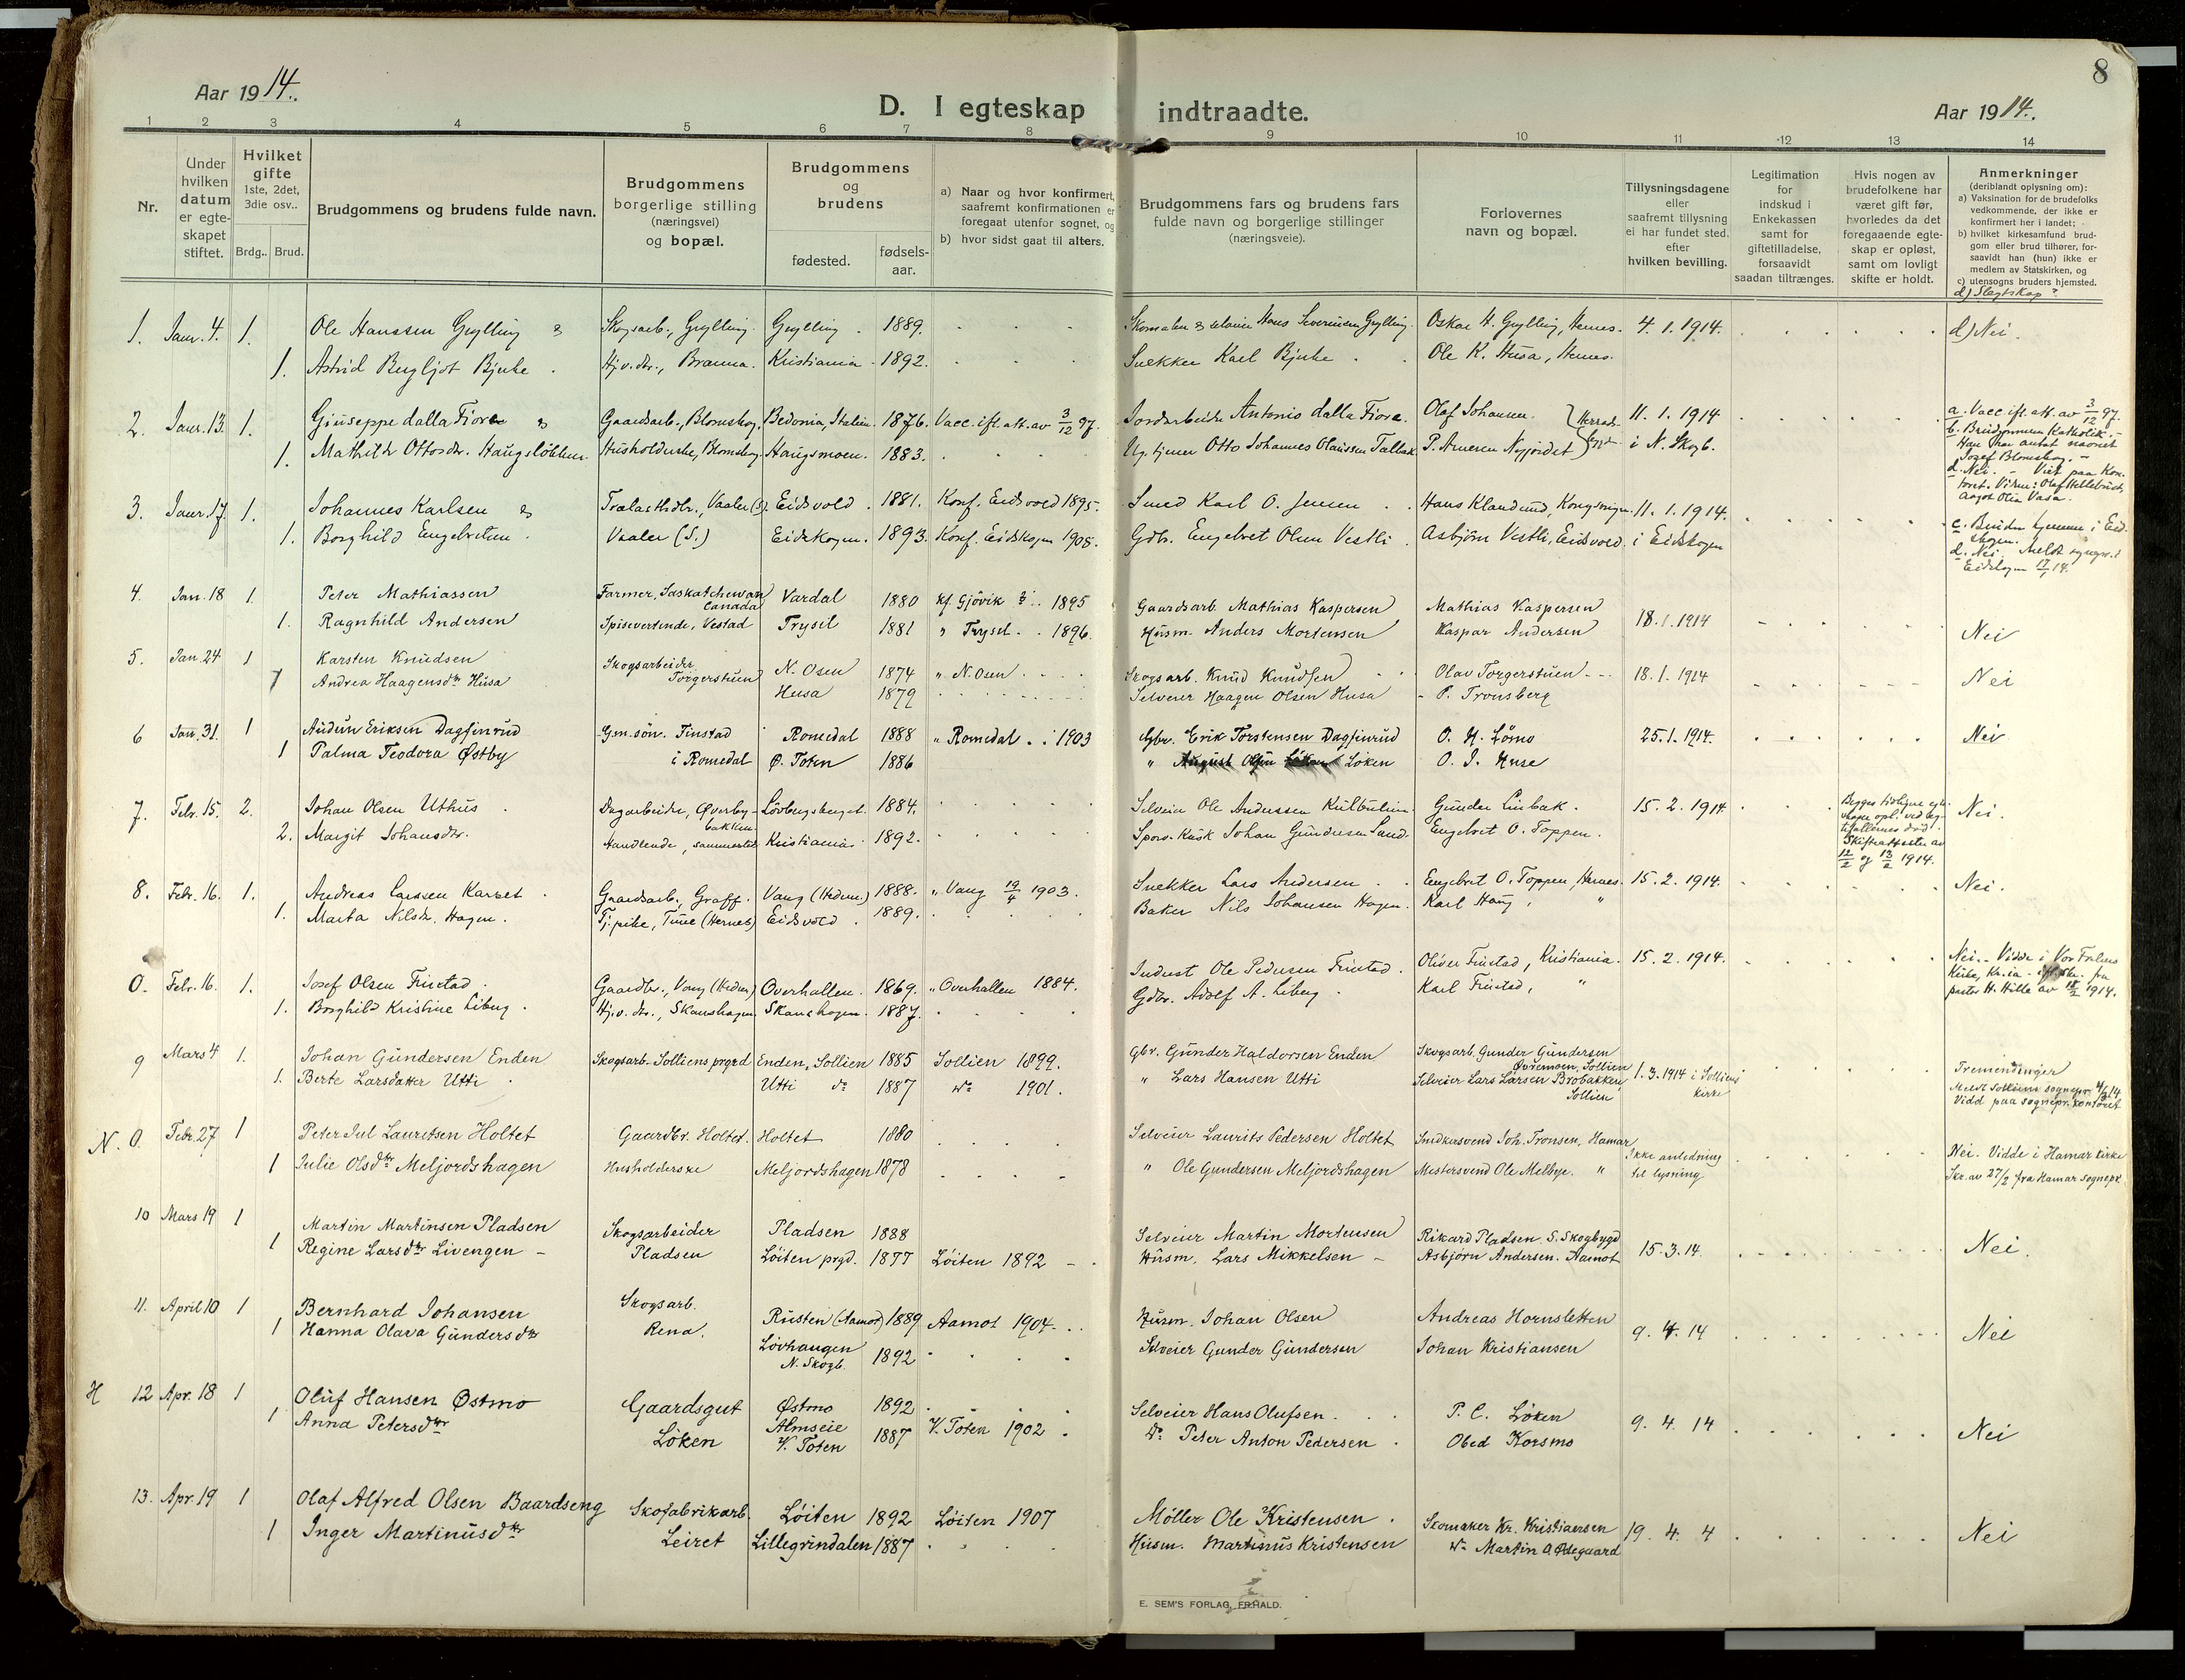 8
Aar 1914.
D. I egteskap indtraadte.
Aar 1914.
1 2 3 4 5 6 7 8 9 10 11 12 13 14
Nr.
Under hvilken datum er egte-skapet stiftet.
Hvilket gifte 1ste, 2det, 3die osv..
Brdg.. Brud.
Brudgommens og brudens fulde navn.
Brudgommens borgerlige stilling (næringsvei) og bopæl.
Brudgommens og brudens
fødested.
fødsels-aar.
a) Naar og hvor konfirmert, saafremt konfirmationen er foregaat utenfor sognet, og
b) hvor sidst gaat til alters.
Brudgommens fars og brudens fars fulde navn og borgerlige stillinger (næringsveie).
Forlovernes navn og bopæl.
Tillysningsdagene eller saafremt tillysning ei har fundet sted, efter hvilken bevilling.
Legitimation for indskud i Enkekassen samt for giftetilladelse, forsaavidt saadan tiltrænges.
Hvis nogen av brudefolkene har været gift før, hvorledes da det foregaaende egte-skap er opløst, samt om lovligt skifte er holdt.
Anmerkninger
(deriblandt oplysning om):
a) Vaksination for de brudefolks vedkommende, der ikke er konfirmert her i landet;
b) hvilket kirkesamfund brud-gom eller brud tilhører, for-saavidt han (hun) ikke er medlem av Statskirken, og
c) utensogns bruders hjemsted.
d) Slegtskap?
1. Janr. 4. 1. Ole Hanssen Grylling & Skogsarb., Grylling. Grylling. 1889. Hans Severinsen Grylling. Oskar H. Grylling, Hernes. 4.1.1914. d) Nei.
1. Astrid Bergljot Bjerke. Hj.v. dtr., Brauna. Kristiania. 1892. Snekker Karl Bjerke. Ole K. Husa, Hernes.
2. Janr. 13. 1. Giuseppe dalla Fiore & Gaardsarb., Blomskog. Bedonia, Italien. 1876. Vacc. ifl. att. av 3/12 97. Jordarbeider Antonio dalla Fiore. Olaf Johansen. 11.1.1914
1. Mathilde Ottosdr. Haugsløkken. Husholderske, Blomskog. Haugsmoen. 1883. Otto Johannes Olaussen P. Arnesen Nyjordet i N. Skogb.
a. Vacc. ifl. att. av 3/12 97.
b. Brudgommen Katholik. -
Han har antat navnet
Josef Blomskog. -
d. Nei. - Viet paa Kon-
toret. Vidner: Olaf Hellebust,
Aagot Olia Vasa.
3. Janr. 17. 1. Johannes Karlsen & Trælasthdlr., Vaaler (S). Eidsvold. 1881. Konf. Eidsvold 1895. Smed Karl O. Jensen. Hans Klandrud, Kongsvinger. 11.1.1914.
1. Borghild Engebretsen. Vaaler (S.) Eidskogen. 1893. Konf. Eidskogen 1908. Gdbr. Engebret Olsen Vestli. Asbjørn Vestli, Eidsvold. i Eidskogen
c. Bruden hjemme i Eid-
skogen.
d. Nei.
4. Jan. 18 1. Peter Mathiassen Farmer, Saskatchewan Canada Vardal 1880 kf. Gjøvik 1895 Gaardsarb. Mathias Kaspersen Mathias Kaspersen 18.1.1914
1. Ragnhild Andersen Spisevertinde, Vestad Trysil 1881 " Trysil. 1896. Husm. Anders Mortensen Kaspar Andersen Nei
5. Jan. 24 1 Karsten Knudsen Skogsarbeider Torgerstuen N. Osen 1874 " N. Osen Skogsarb. Knud Knudsen Olav Torgerstuen 18.1.1914 Nei
1 Andrea Haagensdtr Husa Husa 1879 Selveier Haagen Olsen Husa P. Tronsberg
6 Jan. 31. 1 Audun Eriksen Dagfinrud Gm.søn. Finstad Romedal 1888 " Romedal. 1903 Gbr. Erik Torstensen Dagfinrud O. H. Lømo 25.1.1914. Nei
1 Palma Teodora Østby i Romedal Ø. Toten 1886 " August Olsen Løken O. J. Huse
7. Febr. 15. 2. Johan Olsen Uthus. Dagarbeider, Øverby-bakken. Løvbergsberget. 1884. Selveier Ole Anderssen Gunder Linbak. 15.2.1914 Nei.
2. Margit Johansdr. Handlende, sammesteds Kristiania. 1892. Sporv. Kusk Johan Gundersen Sand. Engebret O. Toppen.
Begges tidligere egte-
skape opl. ved eg-
tefællernes død.
Skifteattester av
12/2 og 13/2 1914.
8. Febr. 16. 1. Andreas Larssen Karset. Gaardsarb., Graff. Vang (Hedem.) 1888. " Vang 19/4 1903. Snekker Lars Andersen. Engebret O. Toppen, Hernes. 15.2.1914. Nei.
1. Marta Nilsdr. Hagen. Tj.pike, Tune (Hernes) Eidsvold. 1889. Baker Nils Johansen Hagen. Karl Haug, "
0. Febr. 16. 1. Josef Olsen Finstad. Gaardbr., Vang (Hedem) Overhallen. 1869. " Overhallen 1884. Ole Pedersen Finstad. Oliver Finstad, Kristiania. 15.2.1914.
1. Borghild Kristine Liberg. Hj.v. dtr., Skaushagen. Skaushagen. 1887. Gdbr. Adolf A. Liberg. Karl Finstad, "
Nei. - Vidde i Vor Frelsers
Kirke, Kr.ia - ifl. skr. fra
pastor H. Hille av 18/2 1914.
9 Mars 4 1. Johan Gundersen Enden Skogsarb. Solliens prgrd Enden, Sollien 1885 Sollien 1899. Gbr. Gunder Haldorsen Enden Skogsarb. Gunder Gundersen Øvremoen, Sollien 1.3.1914 i Solliens kirke
1. Berte Larsdatter Utti. Utti do 1887 do 1901. " Lars Hansen Utti Selveier Lars Larsen Brobakken Sollien
Fremendinger
Meldt Solliens sognepr. 4/3 14.
Vidd paa sognepr. kontoret
N. 0. Febr. 27 1 Peter Jul Lauritsen Holtet Gaardbr. Holtet. Holtet 1880 Selveier Laurits Pedersen Holtet Snedkersvend Joh. Tronsen, Hamar Ikke anledning
1 Julie Olsdtr Meljordshagen Husholderske Meljordshagen 1878 " Ole Gundersen Meljordshagen Mestersvend Ole Melbye. " til lysning
Nei. Vidde i Hamar kirke
Skr. av 27/2 fra Hamar sognepr.
10 Mars 19 1 Martin Martinsen Pladsen Skogsarbeider Pladsen 1888 Selveier Martin Mortensen Rikard Pladsen. S. Skogbygd
1 Regine Larsdtr Livengen - Pladsen Løiten prgd. 1877 Løiten 1892 Husm. Lars Mikkelsen - Asbjørn Andersen. Aamot 15.3.14. Nei.
11. April 10 1 Bernhard Johansen Skogsarb. Rusten (Aamot) 1889 Aamot 1904. Husm. Johan Olsen Andreas Hornsletten
1 Hanna Olava Gundersdtr Rena. Løvhaugen N. Skogb. 1892 Selveier Gunder Gundersen Johan Kristiansen 9.4.14 Nei
H 12 Apr. 18 1 Oluf Hansen Østmo Gaardsgut Østmo 1892 Selveier Hans Olufsen. P. C. Løken
1 Anna Petersdtr Løken Almseie V. Toten 1887 V. Toten 1902. do Peter Anton Pedersen. Obed Korsmo 9.4.14 Nei
13. Apr. 19 1 Olaf Alfred Olsen Baardseng Skofabrikarb. Løiten 1892 Løiten 1907 Møller Ole Kristensen. Skomaker Kr. Kristiansen 19.4.4 Nei
1 Inger Martinusdtr Leiret Lillegrindalen 1887 Husm. Martinus Kristensen do Martin A Ødegaard
E. SEM'S FORLAG, FR.HALD.